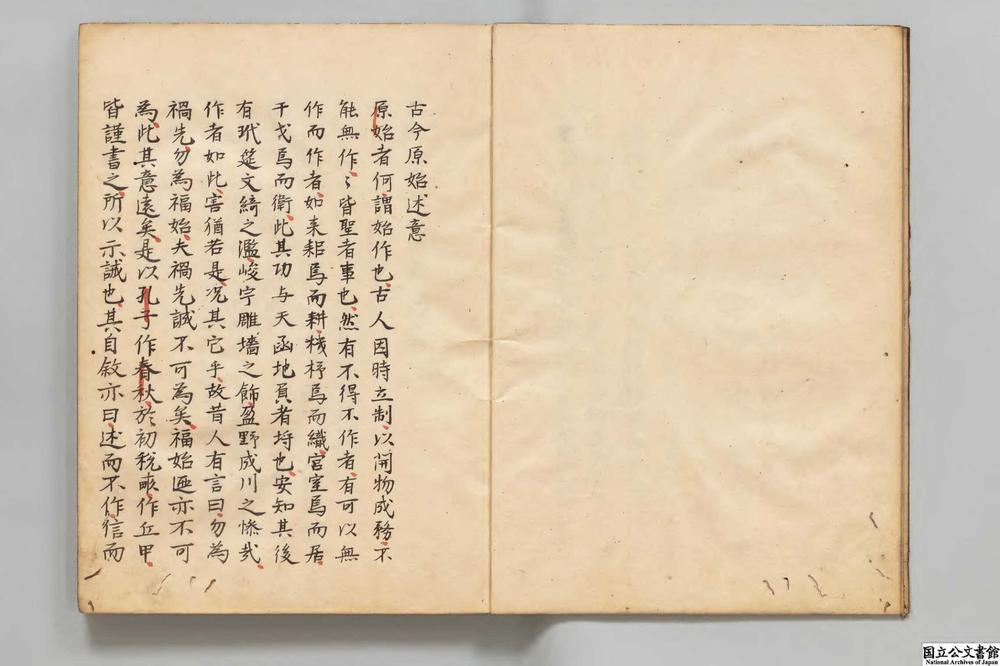 古今原始述意
原始者何謂始作也古人因時立制以開物成務不
能無作〻皆聖者事也然有不得不作者有可以無
作而作者如耒耜焉而耕機杼焉而織宮室焉而居
干戈焉而衛此其功与天函地負者埒也安知其後
有玳筵文綺之濫峻宇雕墻之飾盈野成川之慘哉
作者如此害猶若是况其它乎故昔人有言曰勿為
禍先勿為福始夫禍先誠不可為矣福始亦不可
為此其意遠矣是以孔子作春秋於初稅畝作丘甲
皆謹書之所以示誡也其自敘亦曰述而不作信而
国立公文書館
National Archives of Japan